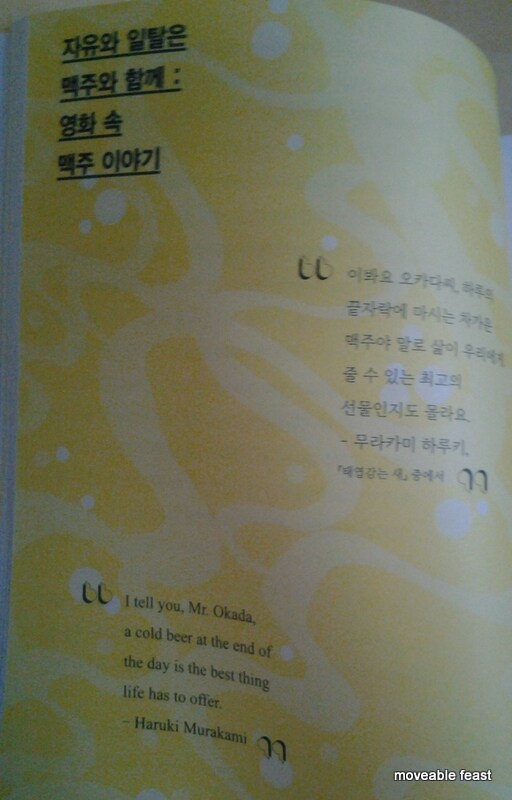 자유와 일탈은
맥주와 함께 :
영화 속
맥주 이야기
“
이봐요 오카다씨, 하루의
끝자락에 마시는 차가운
맥주야 말로 삶이 우리에게
줄 수 있는 최고의
선물인지도 몰라요.
- 무라카미 하루키,
『태엽감는 새』 중에서 ”
“ I tell you, Mr. Okada,
a cold beer at the end of
the day is the best thing
life has to offer.
– Haruki Murakami ”
moveable feast